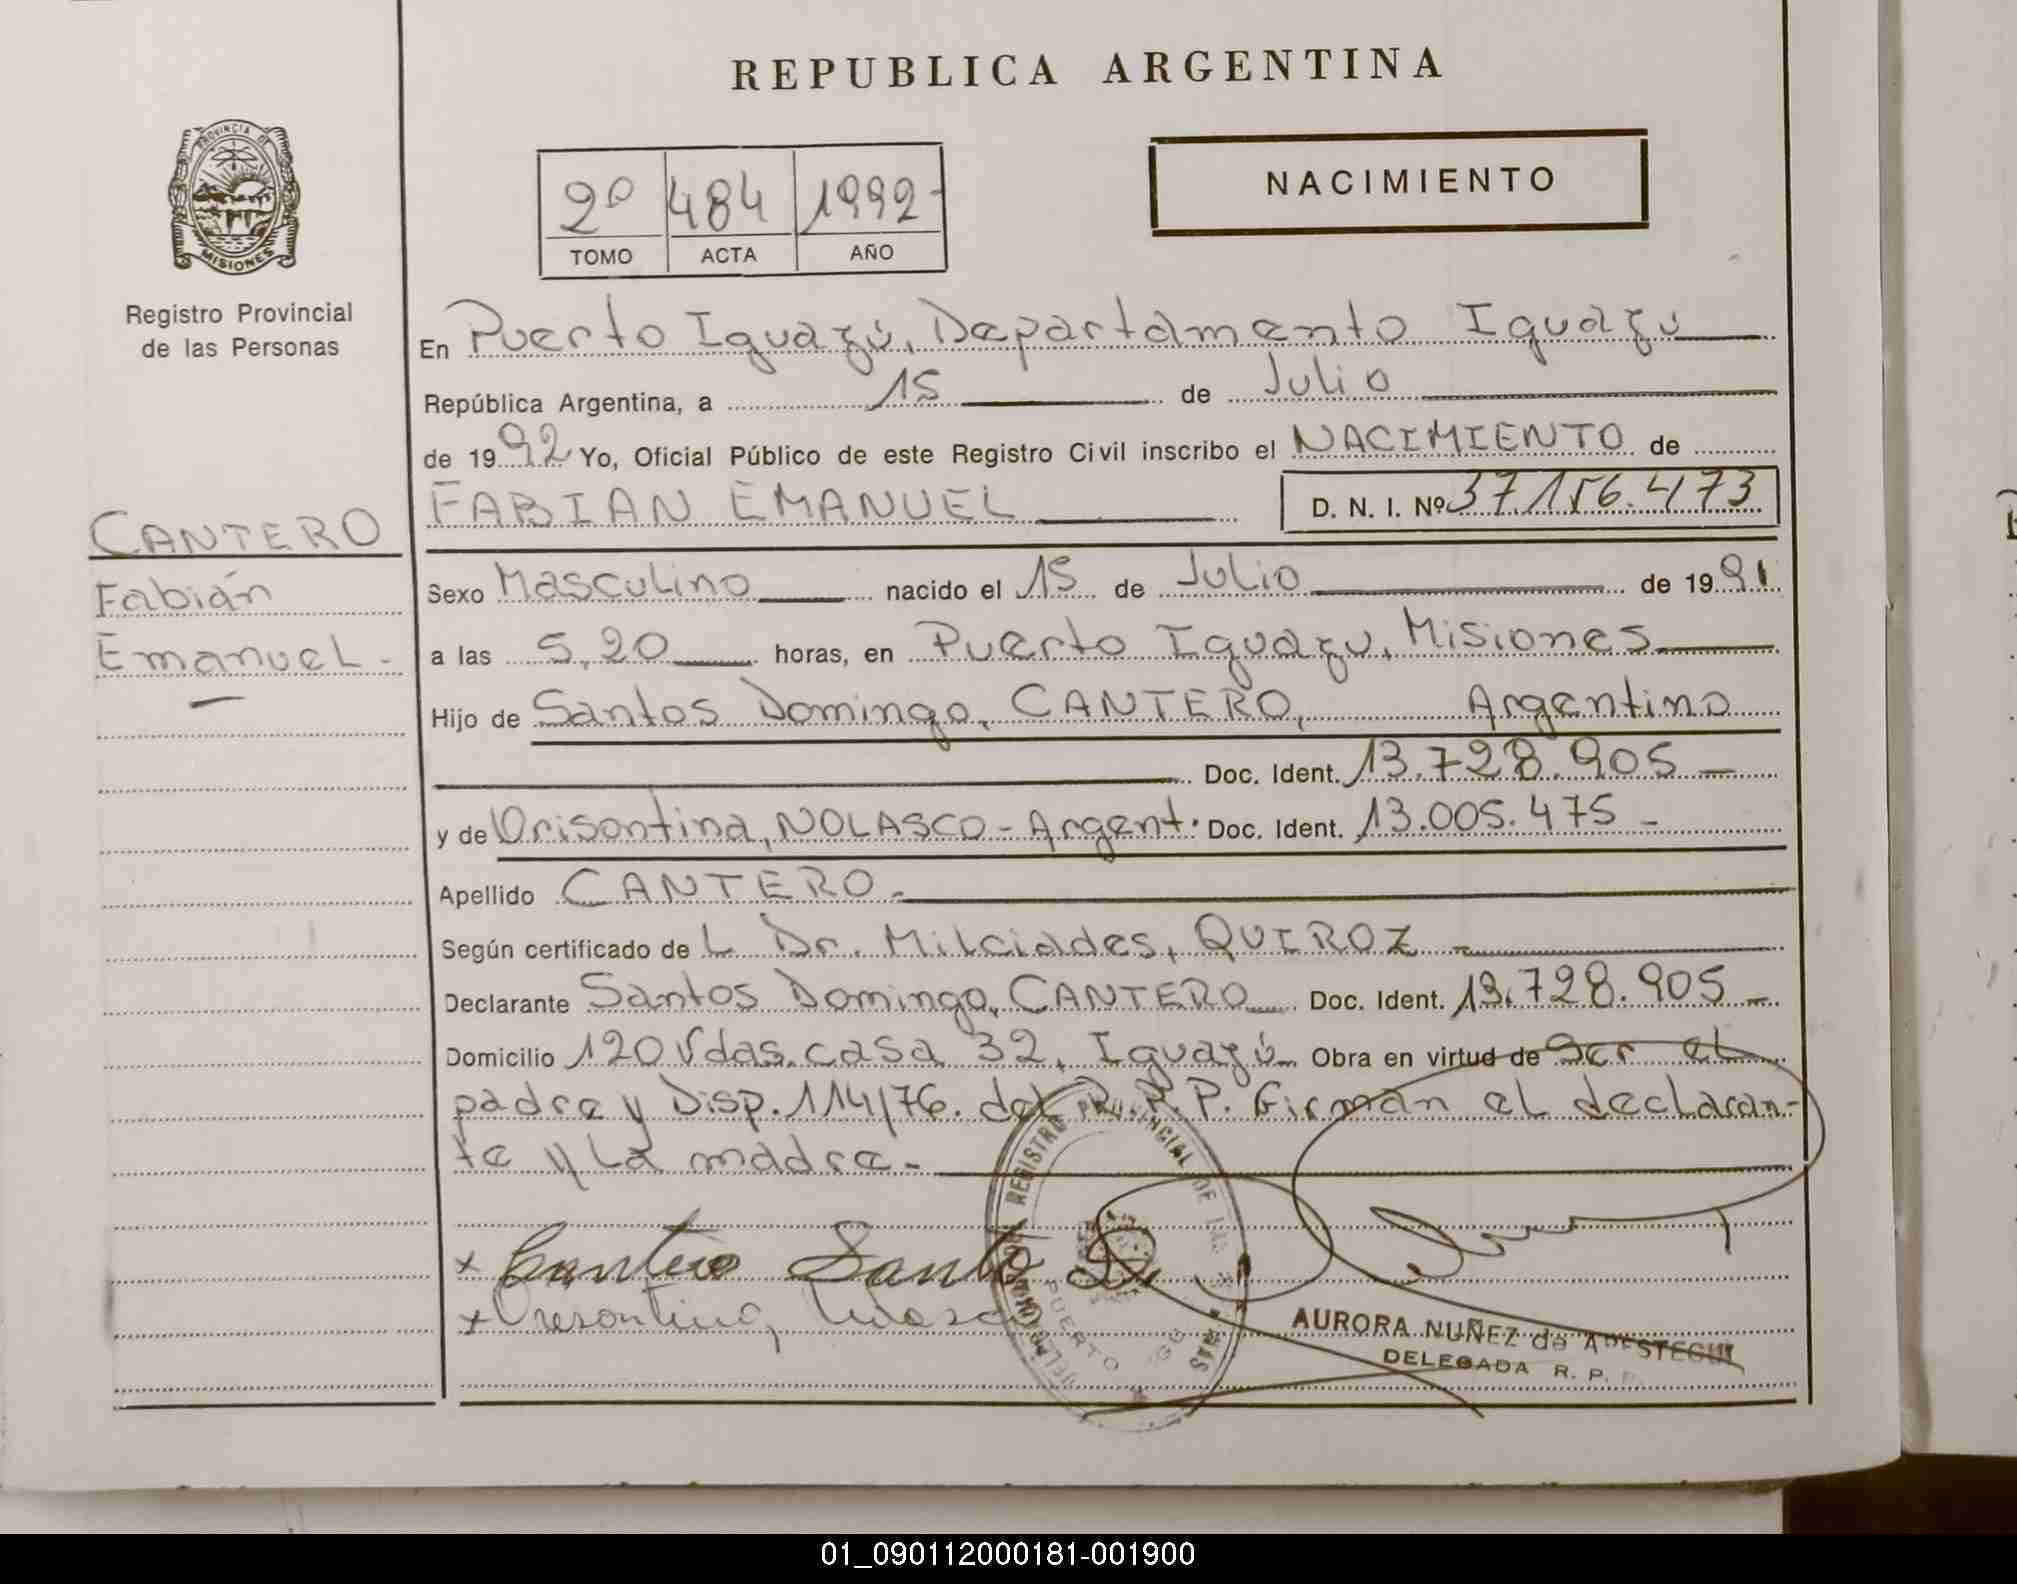 REPUBLICA ARGENTINA
PROVINCIA DE
MISIONES
Registro Provincial
de las Personas
2º 484 1992-
TOMO ACTA AÑO
NACIMIENTO
En Puerto Iguazú, Departamento Iguazú
República Argentina, a 15 de Julio
de 1992 Yo, Oficial Público de este Registro Civil inscribo el NACIMIENTO de
FABIAN EMANUEL D. N. I. Nº 37.156.473
CANTERO
Fabián
Emanuel -
Sexo Masculino nacido el 15 de Julio de 1991
a las 5,20 horas, en Puerto Iguazu, Misiones
Hijo de Santos Domingo, CANTERO, Argentino
Doc. Ident. 13.728.905 -
y de Orisontina, NOLASCO - Argent. Doc. Ident. 13.005.475 -
Apellido CANTERO -
Según certificado de L Dr. Milciades, QUIROZ -
Declarante Santos Domingo, CANTERO Doc. Ident. 13.728.905 -
Domicilio 120 Vdas. casa 32, Iguazú Obra en virtud de Ser el
padre y Disp. 114/76. del R.R.P. Firman el declaran-
te y La madre -
x Cantero Santo D.
x
REGISTRO PROVINCIAL DE LAS
PUERTO
AURORA NUÑEZ de
DELEGADA R. P.
01_090112000181-001900